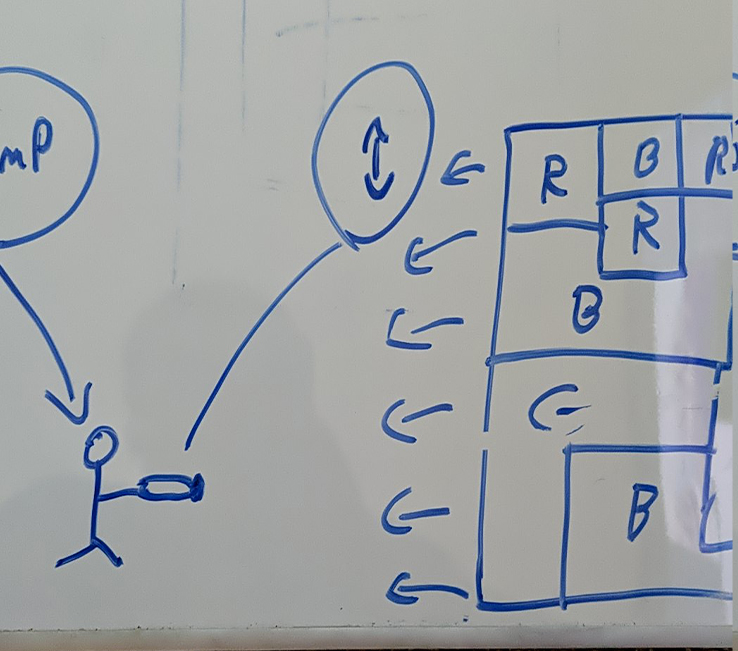 mP
R B R
R
B
B